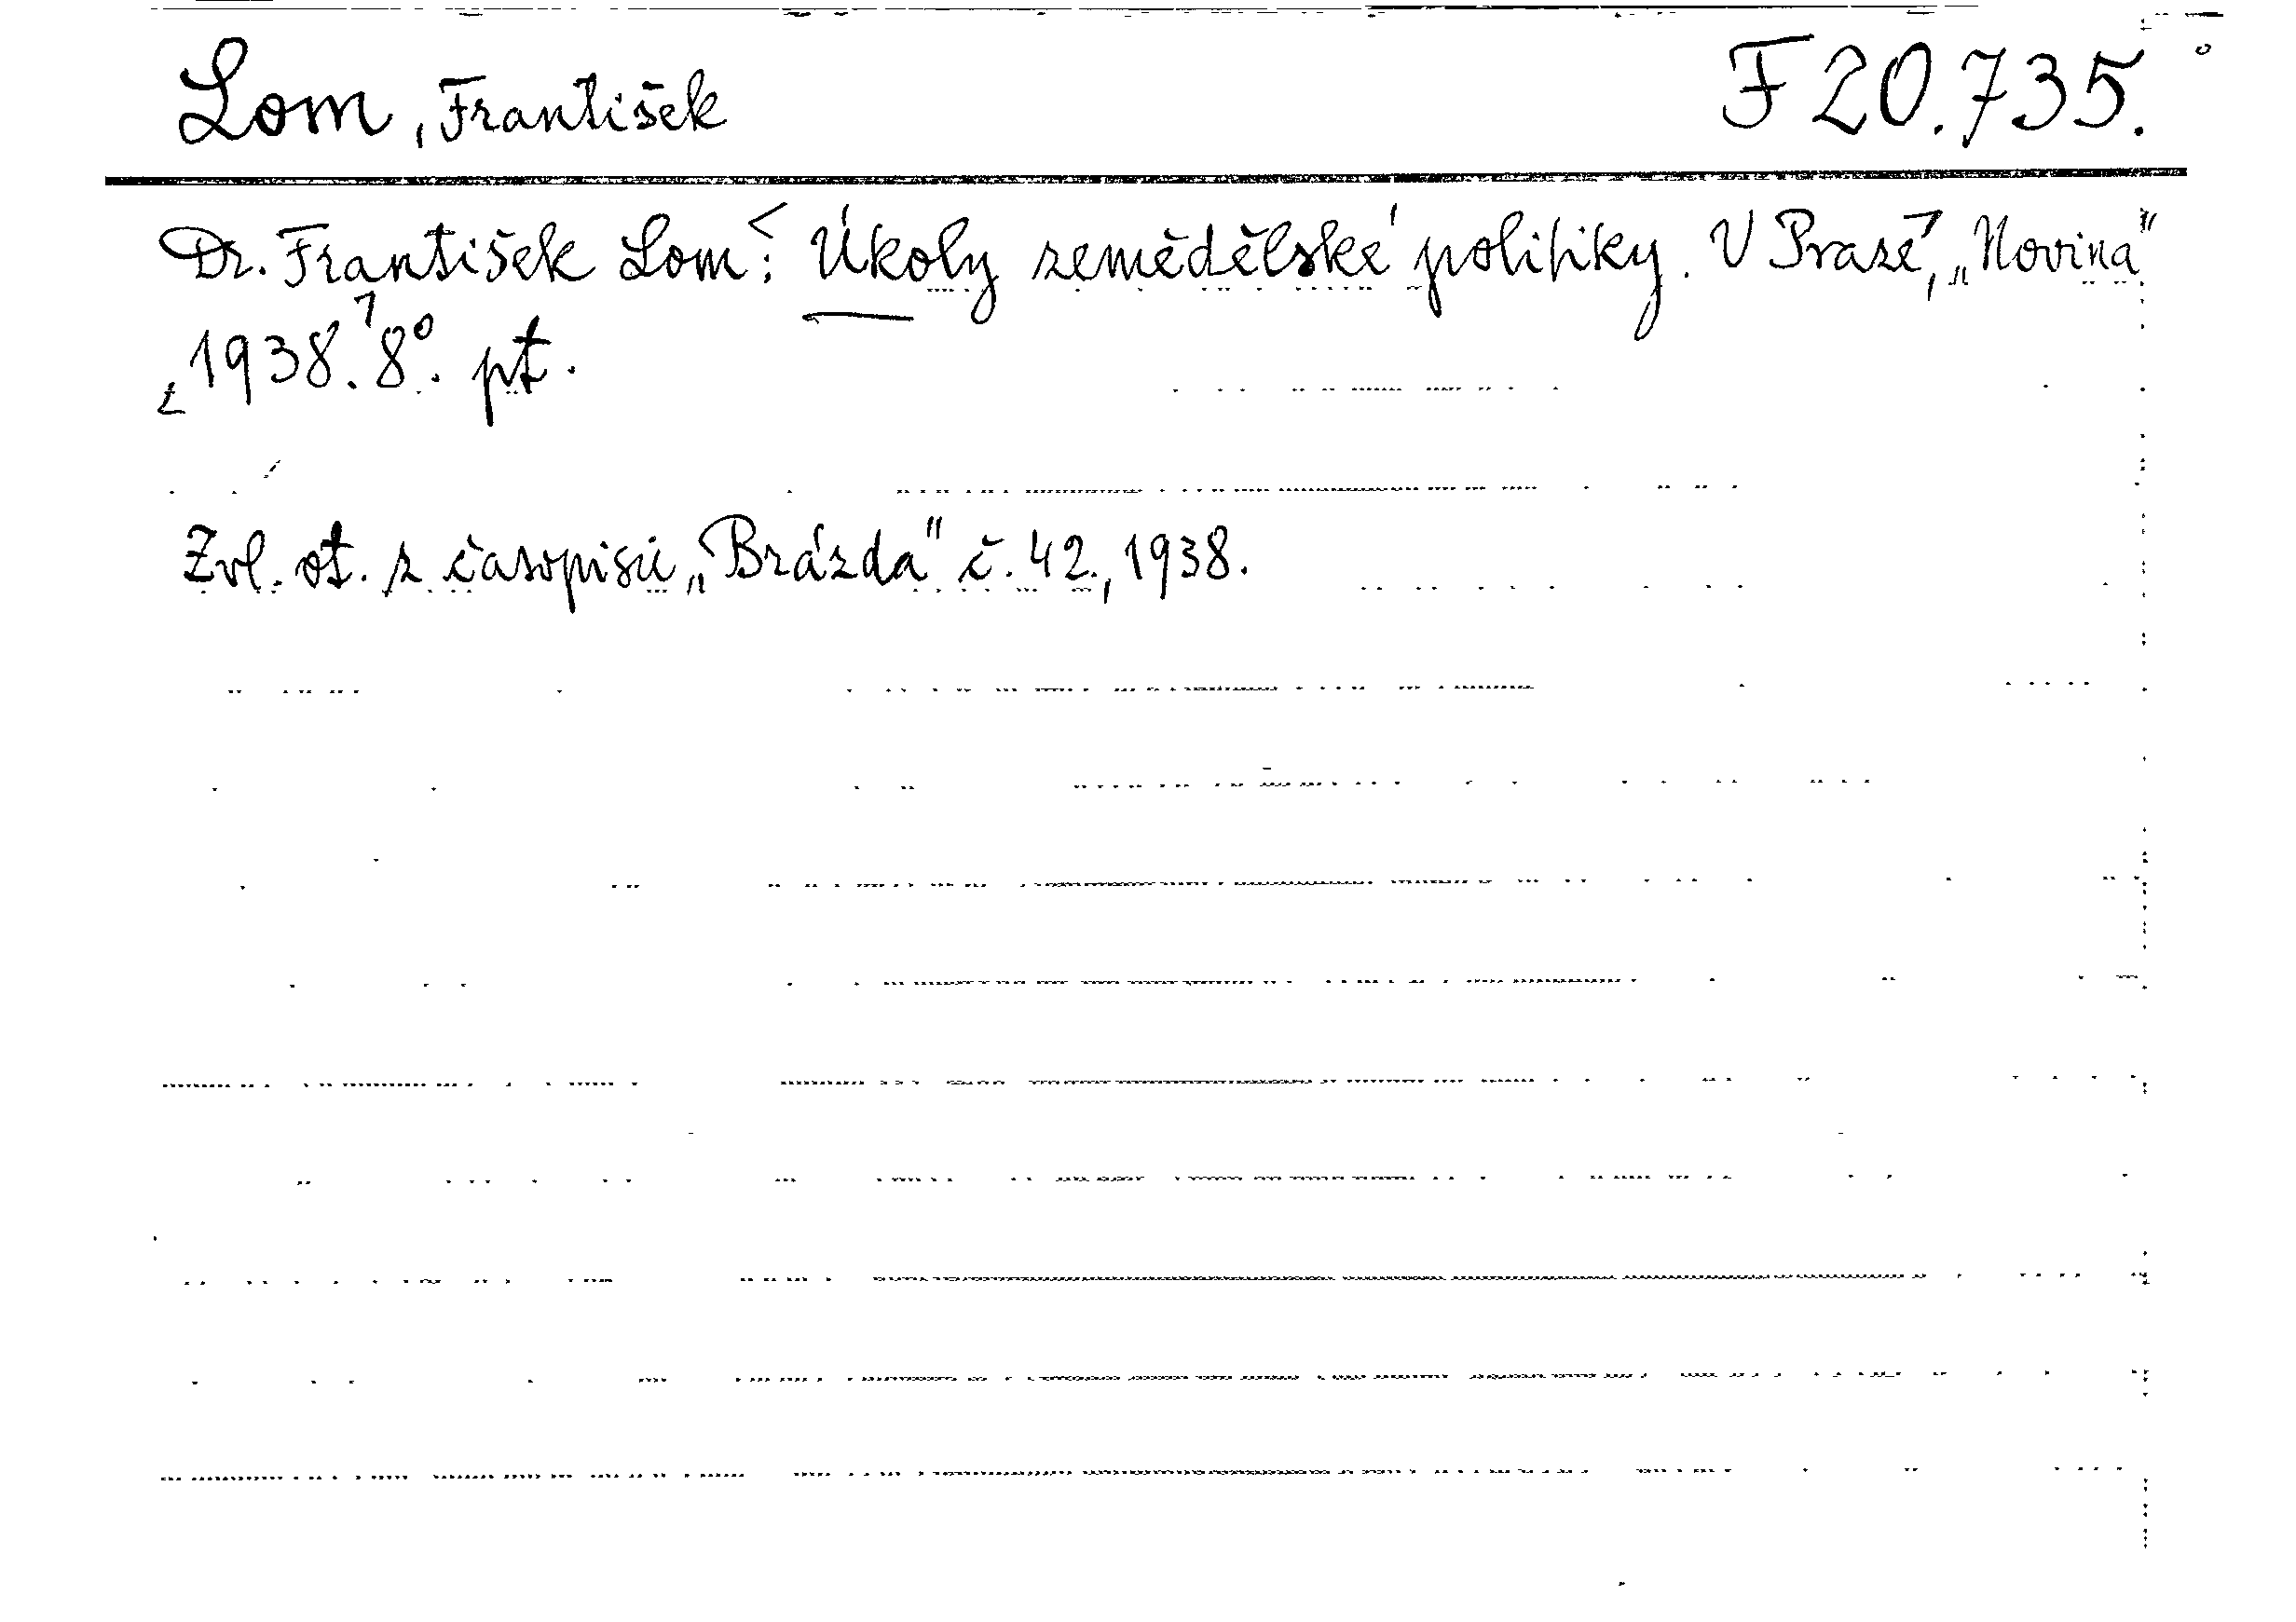 Lom, František F 20.735.
Dr. František Lom: Úkoly zemědělské politiky. V Praze, „Novina"
1938. 8°. pt.
Zvl. ot. z časopisu „Brázda" č. 42., 1938.